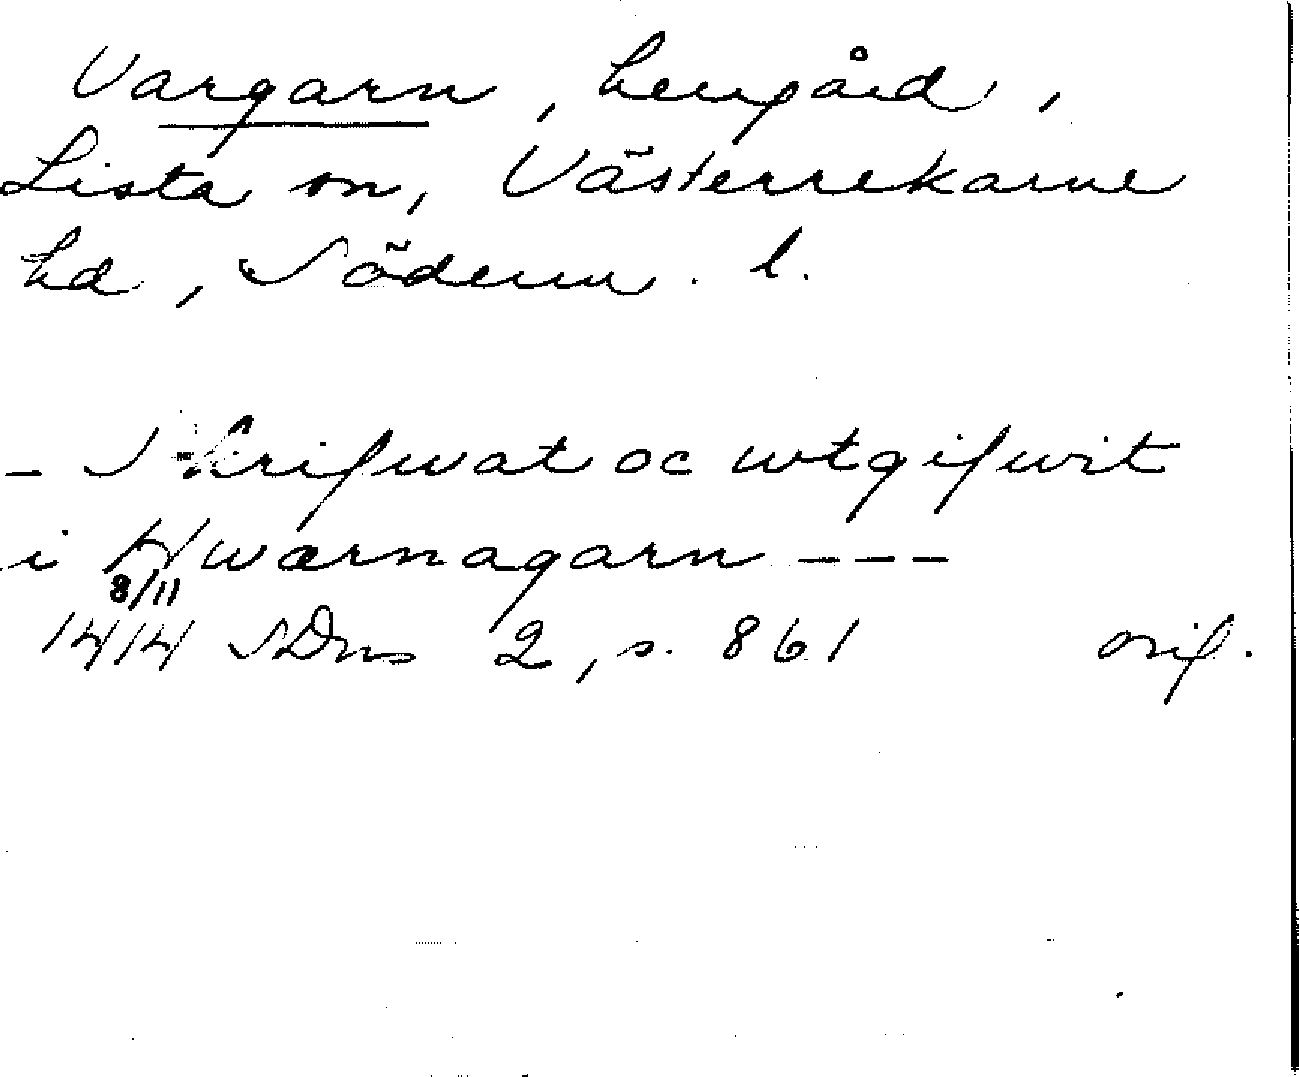 Vargarn, herrgård,
Lista sn, Västerrekarne
hd, Söderm. l.
- Skrifwat oc wtgifwit
i Hwærnagarn ---
8/11
1414 SDns 2, s. 861 orig.